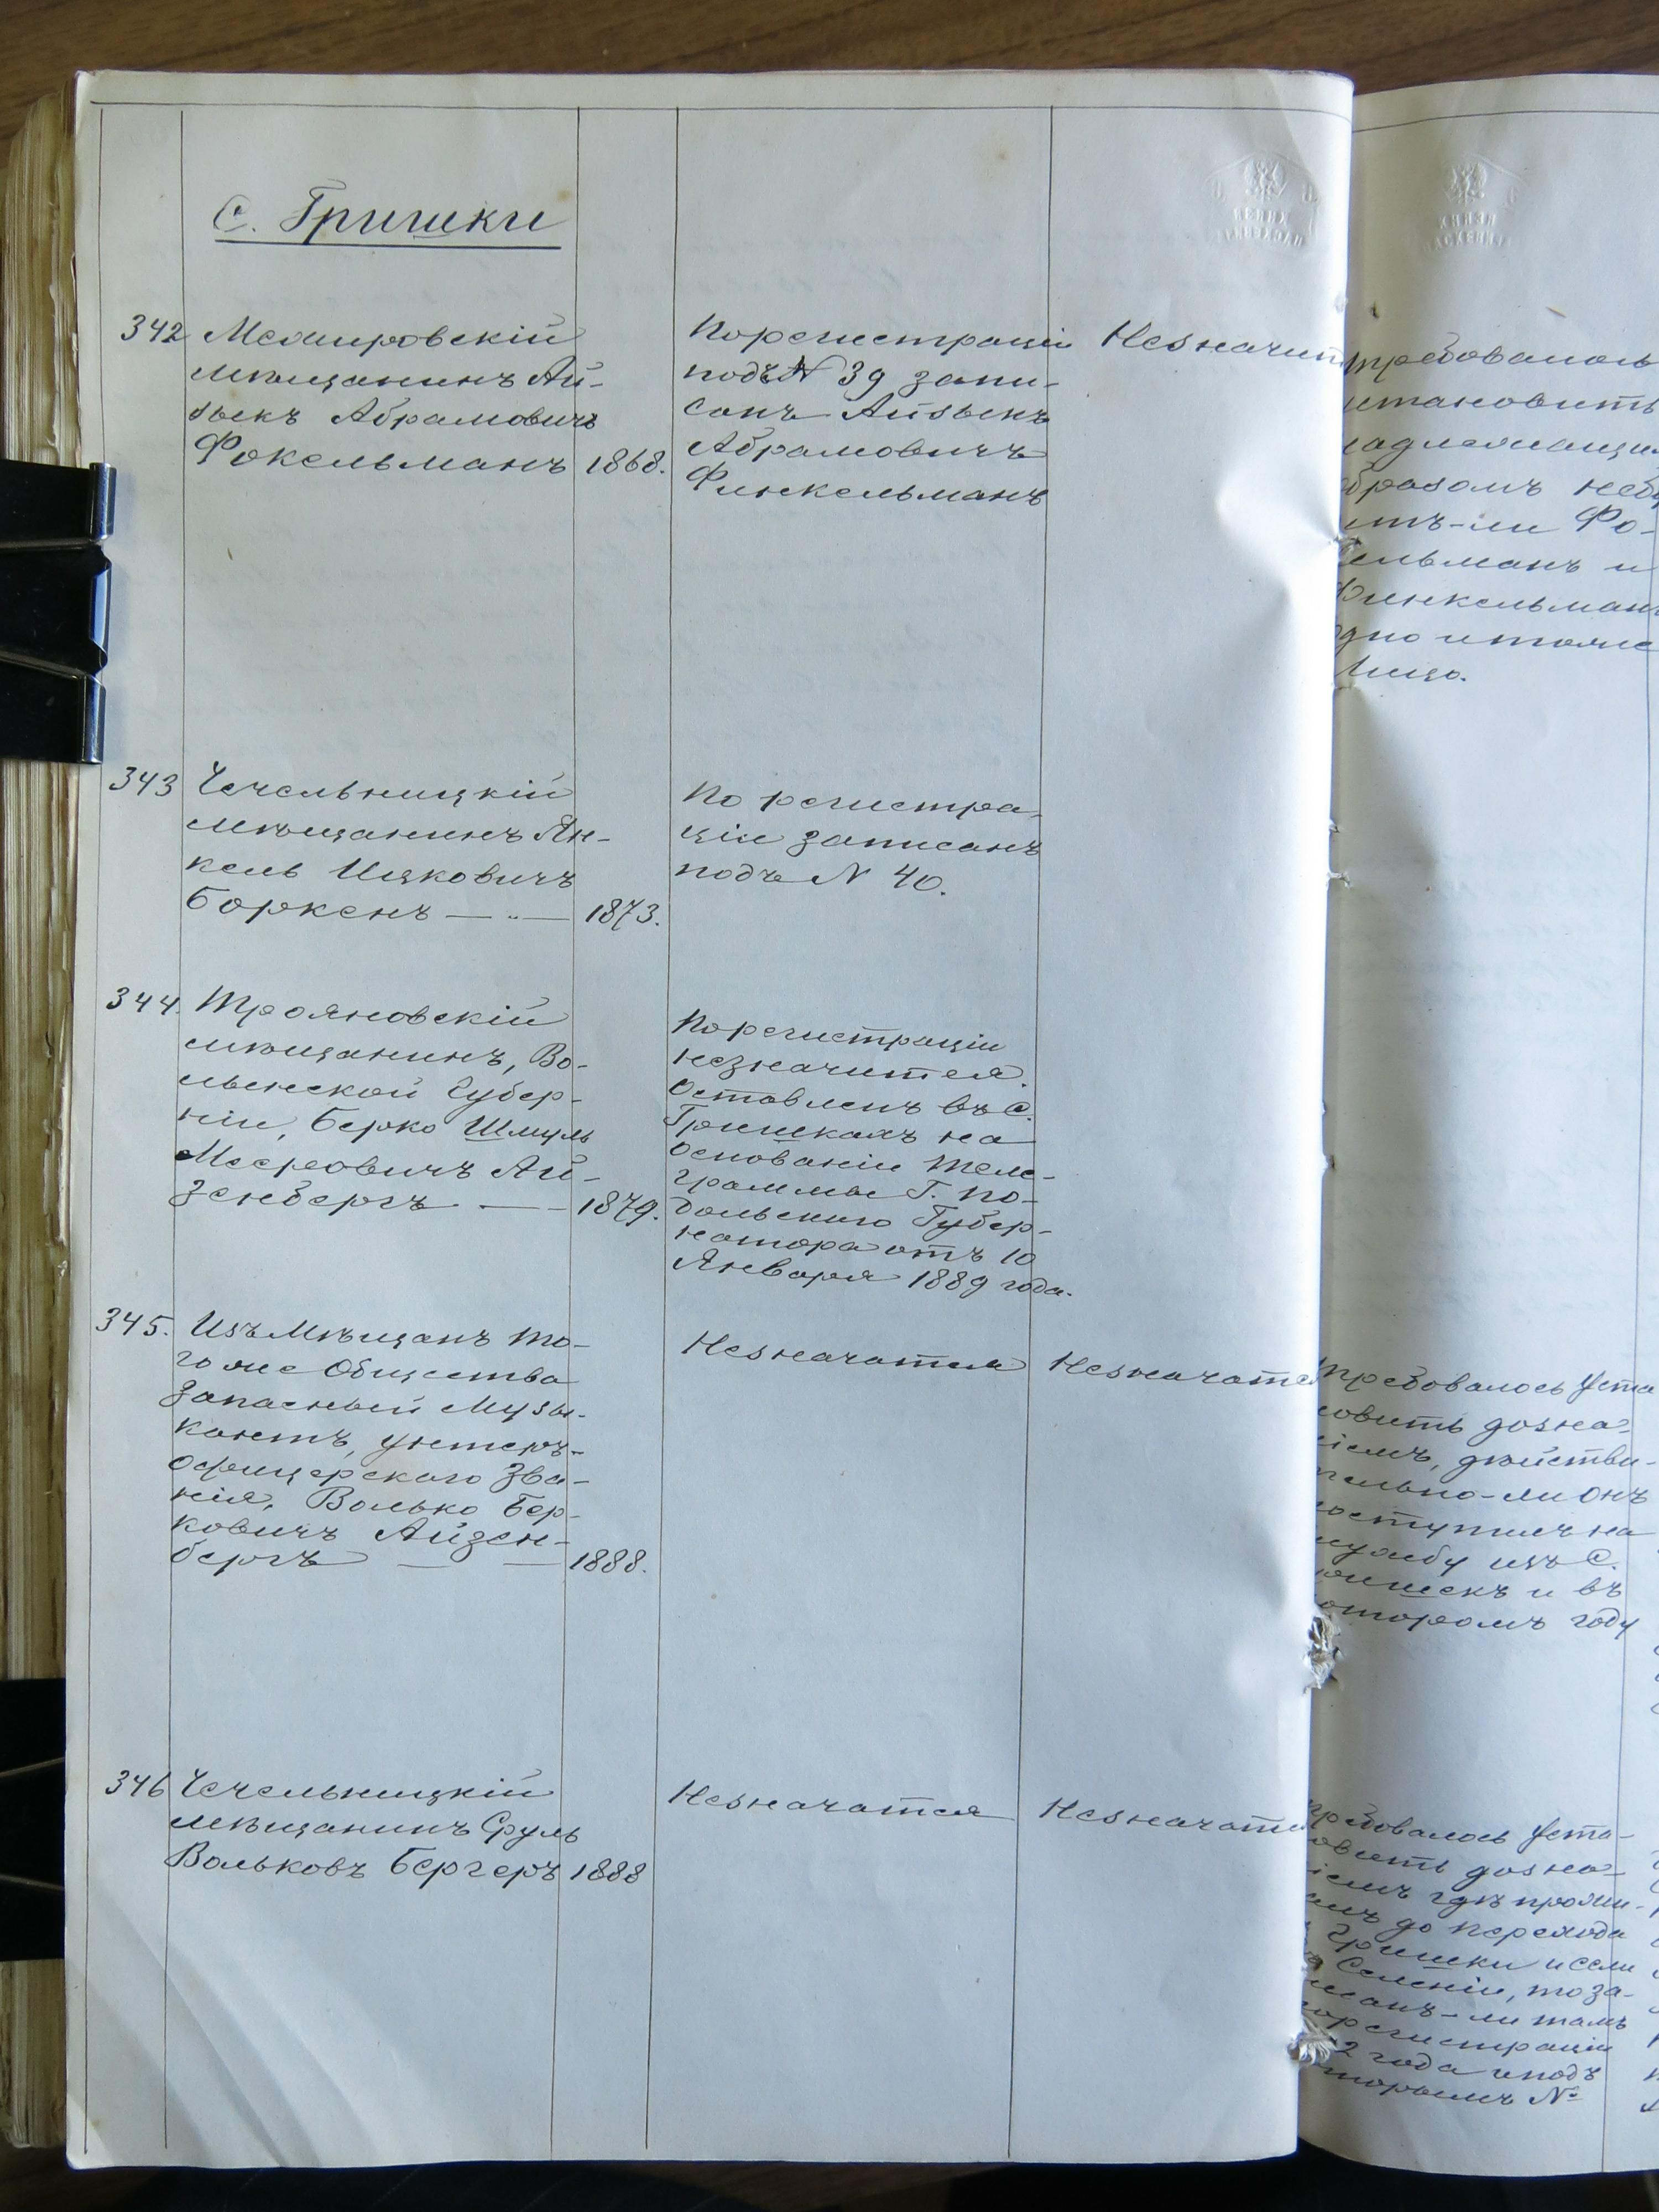 С. Гришки
342 Межировскій
мѣщанинъ Ай-
зыкъ Абрамовичъ
Фокельманъ 1868.
По регистраціи
подъ N 39 запи-
санъ Айзыкъ
Абрамовичъ
Финкельманъ
Незначит
требовалось
становить
надлежащи
образомъ небу
етъ-ли Фо-
кельманъ и
Финкельманъ
одно и тоже
лицо.
343 Чечельницкій
мѣщанинъ Ян-
кель Ицковичъ
Боркенъ — „ — 1873.
По регистра-
ціи записанъ
подъ N 40.
344. Трояновскій
мѣщанинъ, Во-
лынской Губер-
ніи, Берко Шмуль
Мееровичъ Ай-
зенбергъ — — 1879.
По регистраціи
незначится.
Оставленъ въ С.
Гришкахъ на
основаніи теле-
граммы Г. По-
дольскаго Губер-
натора отъ 10
Января 1889 года.
345. Изъ мѣщанъ то-
го же Общества
запасный музы-
кантъ, унтеръ-
офицерскаго зва-
нія, Волько Бер-
ковичъ Айзен-
бергъ — — 1888.
Незначатся
Незначатся
требовалось уста
новить дозна-
ніемъ, дѣйстви-
тельно-ли онъ
поступилъ на
службу изъ С.
Гришекъ и въ
которомъ году
346 Чечельницкій
мѣщанинъ Сруль
Вольковъ Бергеръ 1888
Незначатся
Незначатс
требовалось уста-
новить дозна-
ніемъ гдѣ прожи-
алъ до перехода
Гришки и если
Селеніи, то за-
писанъ-ли тамъ
регистраціи
2 года и подъ
которымъ №
КНЯЗЯ
ПАСКЕВИЧА